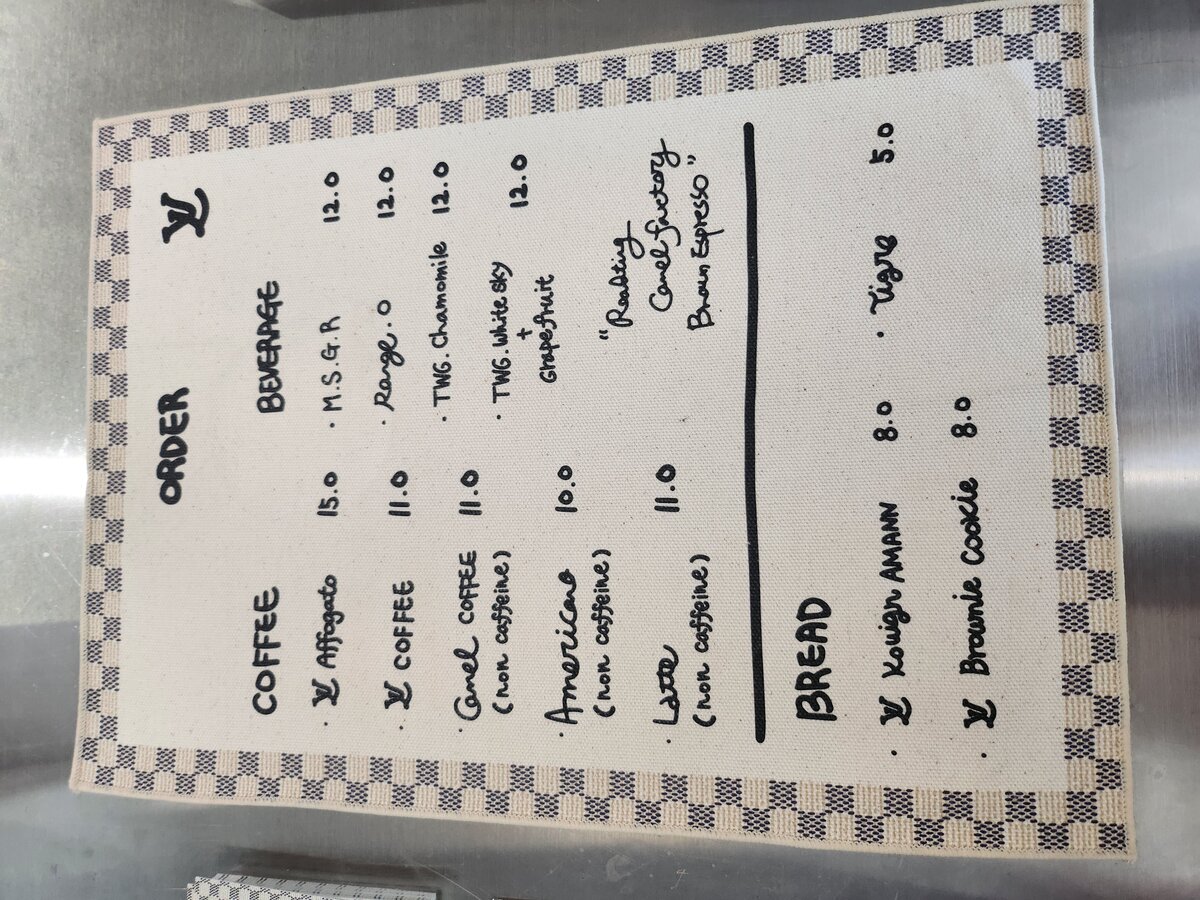 ORDER LV
COFFEE
· LV Affogato 15.0
· LV COFFEE 11.0
· Camel COFFEE 11.0
(non caffeine)
· Americano 10.0
(non caffeine)
· Latte 11.0
(non caffeine)
BEVERAGE
· M.S.G.R 12.0
· Range.O 12.0
· TWG. Chamomile 12.0
· TWG. White sky 12.0
+
Grapefruit
Camel factory
Espresso"
BREAD
· LV Kouign AMANN 8.0
· Tigre 5.0
· LV Brownie Cookie 8.0